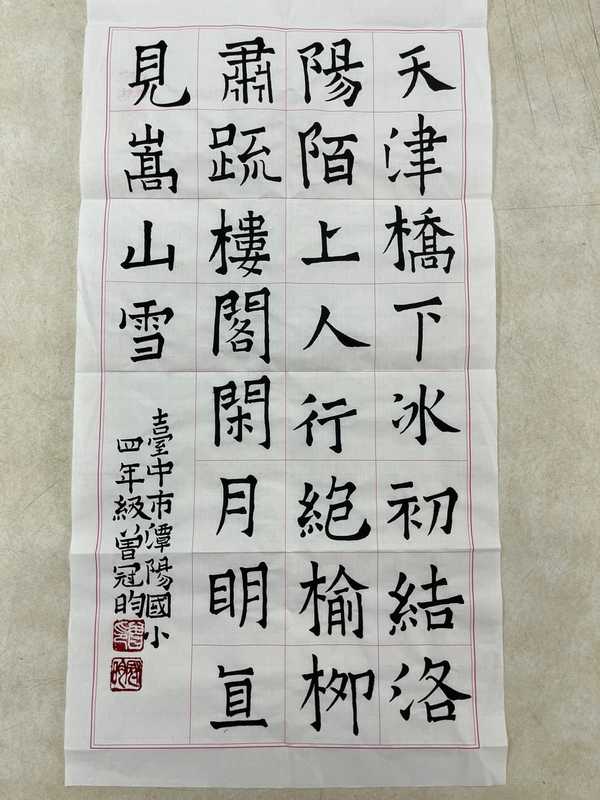 天津橋下冰初結洛
陽陌上人行絕榆柳
肅疏樓閣閑月明直
見嵩山雪
臺中市潭陽國小
四年級曾冠昀